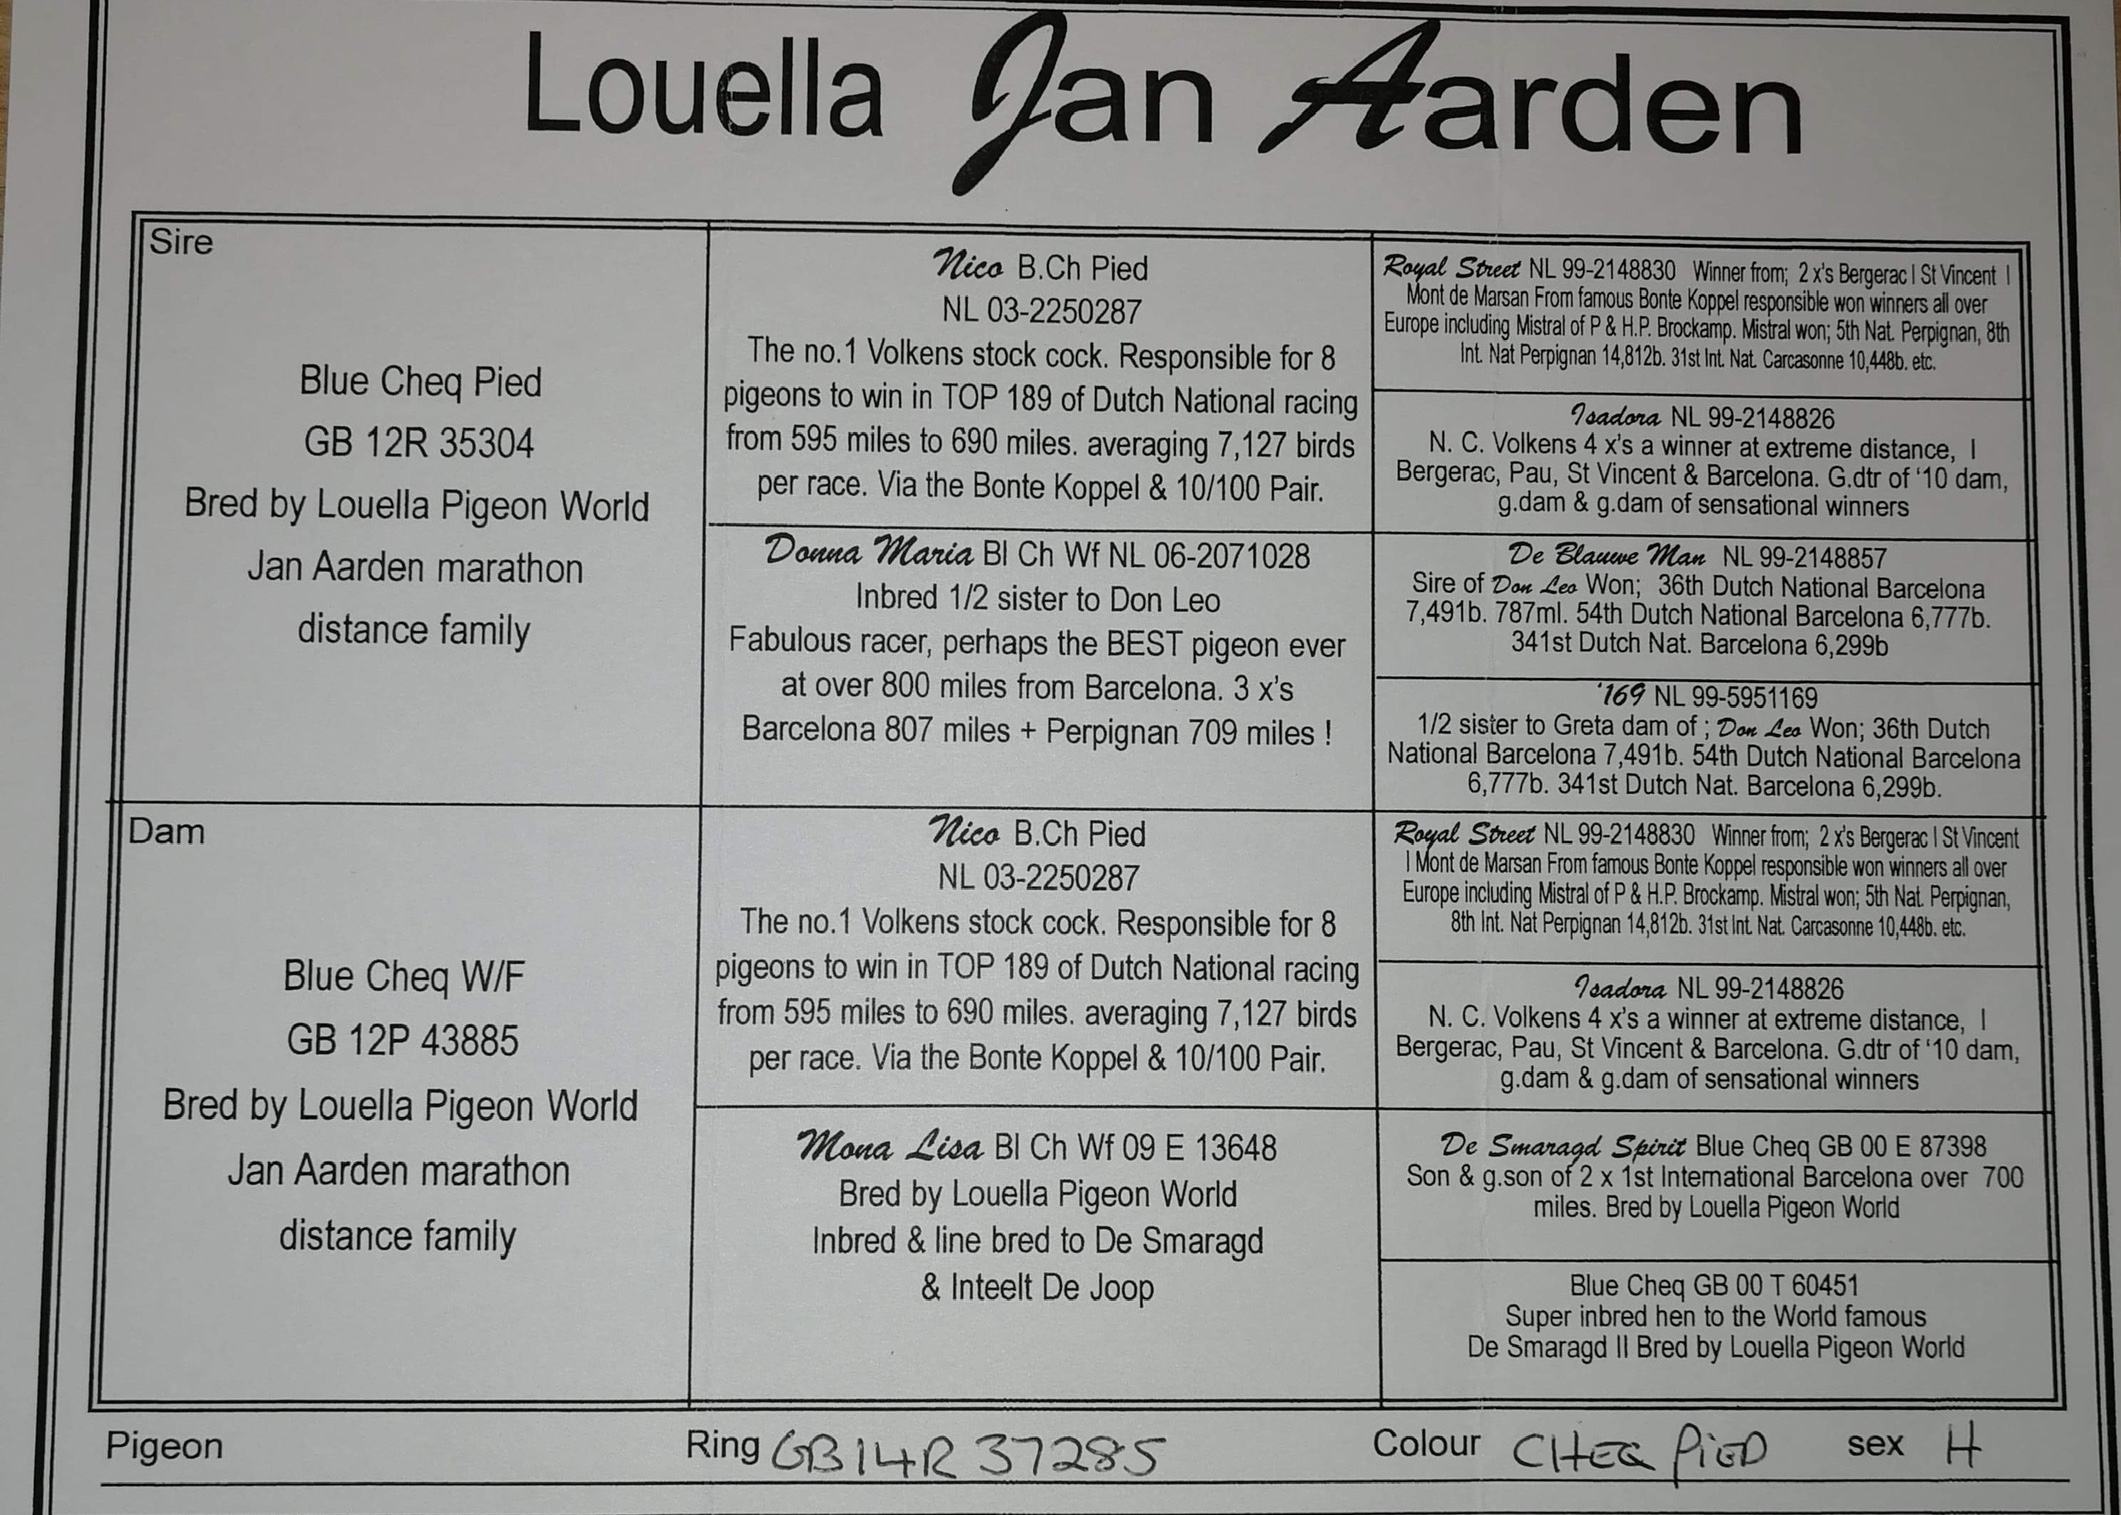 Louella Jan Aarden
Sire
Blue Cheq Pied
GB 12R 35304
Bred by Louella Pigeon World
Jan Aarden marathon
distance family
Nico B.Ch Pied
NL 03-2250287
The no.1 Volkens stock cock. Responsible for 8
pigeons to win in TOP 189 of Dutch National racing
from 595 miles to 690 miles. averaging 7,127 birds
per race. Via the Bonte Koppel & 10/100 Pair.
Donna Maria Bl Ch Wf NL 06-2071028
Inbred 1/2 sister to Don Leo
Fabulous racer, perhaps the BEST pigeon ever
at over 800 miles from Barcelona. 3 x's
Barcelona 807 miles + Perpignan 709 miles !
Royal Street NL 99-2148830 Winner from; 2 x's Bergerac I St Vincent I
Mont de Marsan From famous Bonte Koppel responsible won winners all over
Europe including Mistral of P & H.P. Brockamp. Mistral won; 5th Nat. Perpignan, 8th
Int. Nat Perpignan 14,812b. 31st Int. Nat. Carcasonne 10,448b. etc.
Isadora NL 99-2148826
N. C. Volkens 4 x's a winner at extreme distance, I
Bergerac, Pau, St Vincent & Barcelona. G.dtr of '10 dam,
g.dam & g.dam of sensational winners
De Blauwe Man NL 99-2148857
Sire of Don Leo Won; 36th Dutch National Barcelona
7,491b. 787ml. 54th Dutch National Barcelona 6,777b.
341st Dutch Nat. Barcelona 6,299b
'169 NL 99-5951169
1/2 sister to Greta dam of ; Don Leo Won; 36th Dutch
National Barcelona 7,491b. 54th Dutch National Barcelona
6,777b. 341st Dutch Nat. Barcelona 6,299b.
Dam
Blue Cheq W/F
GB 12P 43885
Bred by Louella Pigeon World
Jan Aarden marathon
distance family
Nico B.Ch Pied
NL 03-2250287
The no.1 Volkens stock cock. Responsible for 8
pigeons to win in TOP 189 of Dutch National racing
from 595 miles to 690 miles. averaging 7,127 birds
per race. Via the Bonte Koppel & 10/100 Pair.
Mona Lisa Bl Ch Wf 09 E 13648
Bred by Louella Pigeon World
Inbred & line bred to De Smaragd
& Inteelt De Joop
Royal Street NL 99-2148830 Winner from; 2 x's Bergerac I St Vincent
I Mont de Marsan From famous Bonte Koppel responsible won winners all over
Europe including Mistral of P & H.P. Brockamp. Mistral won; 5th Nat. Perpignan,
8th Int. Nat Perpignan 14,812b. 31st Int. Nat. Carcasonne 10,448b. etc.
Isadora NL 99-2148826
N. C. Volkens 4 x's a winner at extreme distance, I
Bergerac, Pau, St Vincent & Barcelona. G.dtr of '10 dam,
g.dam & g.dam of sensational winners
De Smaragd Spirit Blue Cheq GB 00 E 87398
Son & g.son of 2 x 1st International Barcelona over 700
miles. Bred by Louella Pigeon World
Blue Cheq GB 00 T 60451
Super inbred hen to the World famous
De Smaragd II Bred by Louella Pigeon World
Pigeon Ring GB14R 37285 Colour CHEQ PiED sex H